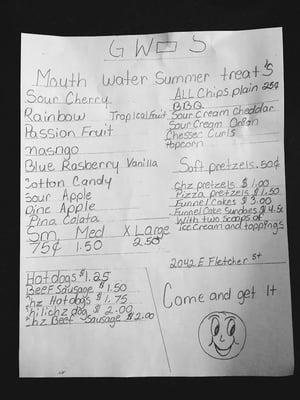 GWO S
Mouth Water Summer treat's
Sour Cherry
Rainbow Tropical Fruit
Passion Fruit
mango
Blue Rasberry Vanilla
Cotton Candy
Sour Apple
Pine Apple
Pina Colata
Sm Med X Large
75¢ 1.50 2.50
ALL Chips plain 25¢
BBQ
Sour Cream Cheddar
Sour Cream Onion
Chesser Curls
Popcorn
Soft pretzels .50¢
chz pretzels $1.00
Pizza pretzels $1.50
Funnel Cakes $3.00
Funnel Cake Sundaes $4.50
With two scoops of
ice cream and toppings
Hot dogs $1.25
Beef Sausage $1.50
chz Hot dogs $1.75
chili chz dog $2.00
chz Beef Sausage $2.00
2042 E Fletcher St
Come and get It